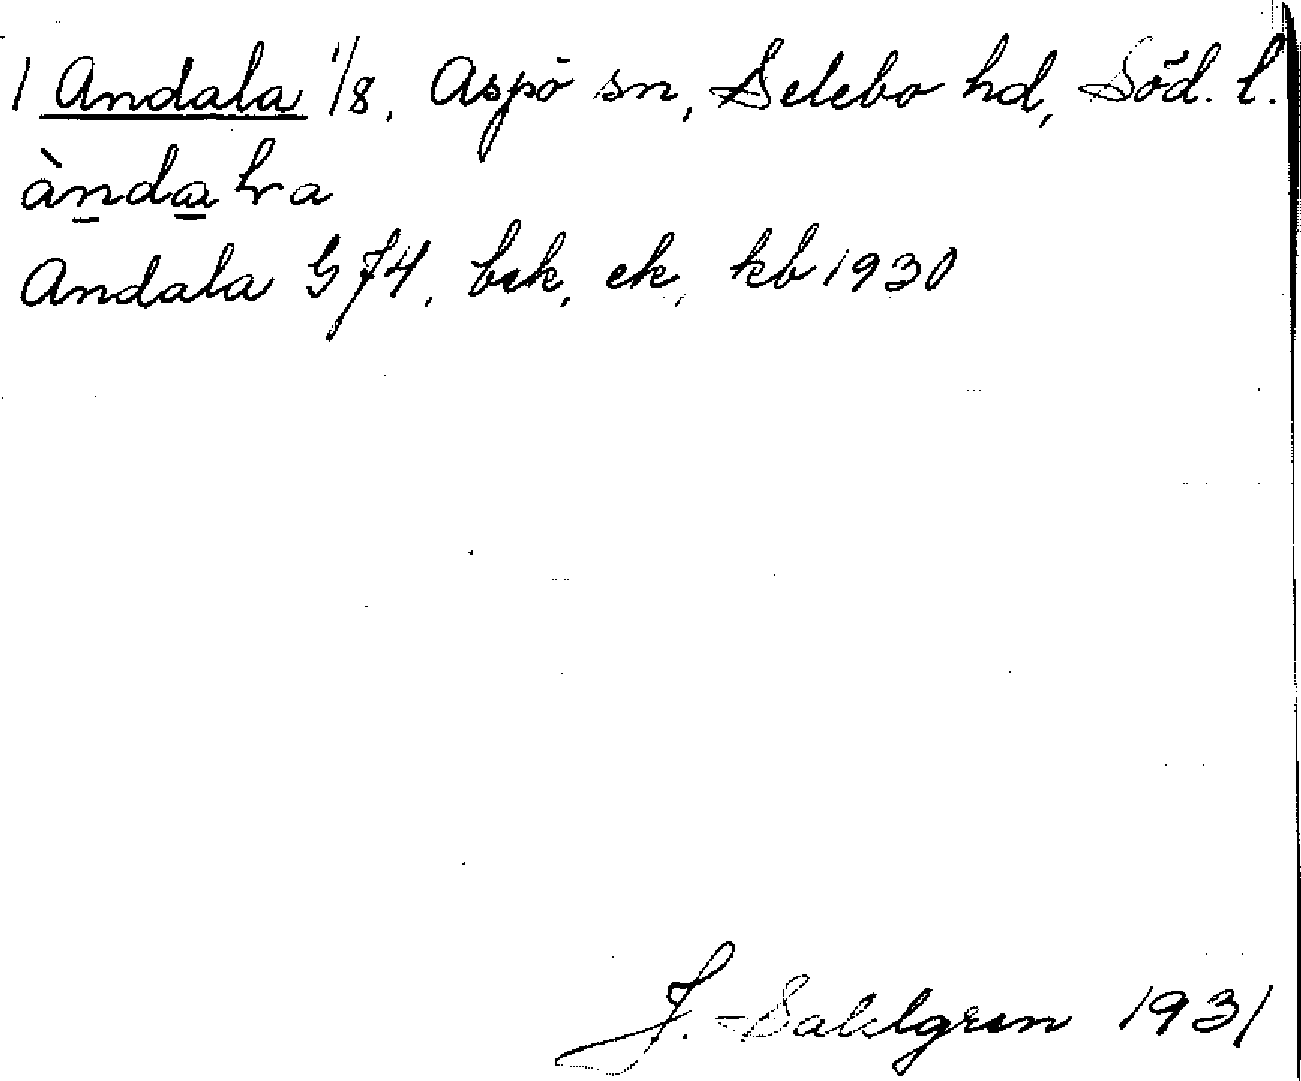 1 Andala 1/8, Aspö sn, Selebo hd, Söd. l.
àndaƚa
Andala G74, bek, ek, kb 1930
J. Sahlgren 1931